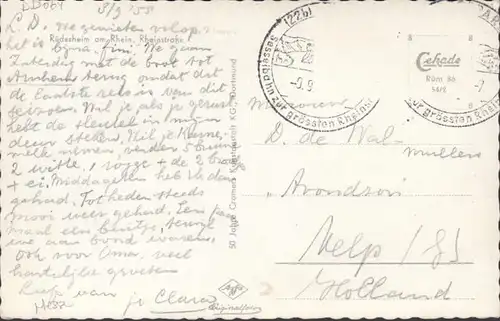 8/9 '58
L. D. We genieten volop
Rüdesheim am Rhein, Rheinstraße
het is bijna fini. We gaan
Zaterdag met de boot tot
Arnhem terug omdat dit
de laatste reis is van dit
seizoen. Wil je als je
hebt de sleutel in mijn
deur steken. Wil je Kerne,
melk nemen verder
2 witte, 1 + de 2
+ ei. Middageten heb ik dan
gehad. Tot heden steeds
mooi weer gehad. Een paar
maal een buitje, terwijl
we aan boord waren.
Ook voor Oma, veel
hartelijke groeten
Liefs van
je Clara
50 Jahre Cramers Kunstanstalt KG., Dortmund
Agfa
Originalfoto
(22b)
Seilbahn zur grössten Rhein
-9.9
zur grössten Rhein
Cekade
Rüm 86
Mevrouw
D. de Wal-
Mullers
"Avondzon"
Velp / G
Holland